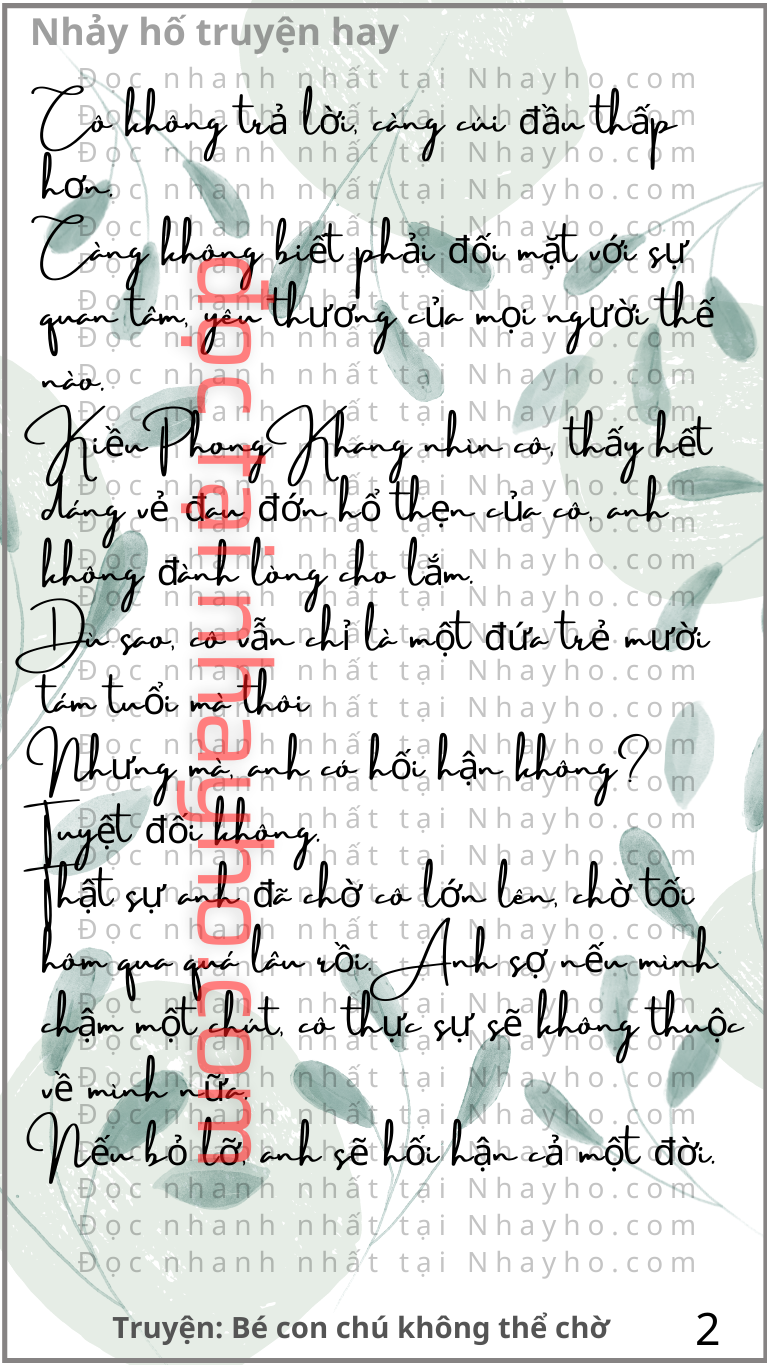 Nhảy hố truyện hay
Cô không trả lời, càng cúi đầu thấp
hơn.
Càng không biết phải đối mặt với sự
quan tâm, yêu thương của mọi người thế
nào.
Kiều Phong Khang nhìn cô, thấy hết
dáng vẻ đau đớn hổ thẹn của cô, anh
không đành lòng cho lắm.
Dù sao, cô vẫn chỉ là một đứa trẻ mười
tám tuổi mà thôi
Nhưng mà, anh có hối hận không?
Tuyệt đối không.
Thật sự anh đã chờ cô lớn lên, chờ tối
hôm qua quá lâu rồi. Anh sợ nếu mình
chậm một chút, cô thực sự sẽ không thuộc
về mình nữa.
Nếu bỏ lỡ, anh sẽ hối hận cả một đời.
đọc tại nhayho.com
Đọc nhanh nhất tại Nhayho.com
Truyện: Bé con chú không thể chờ
2